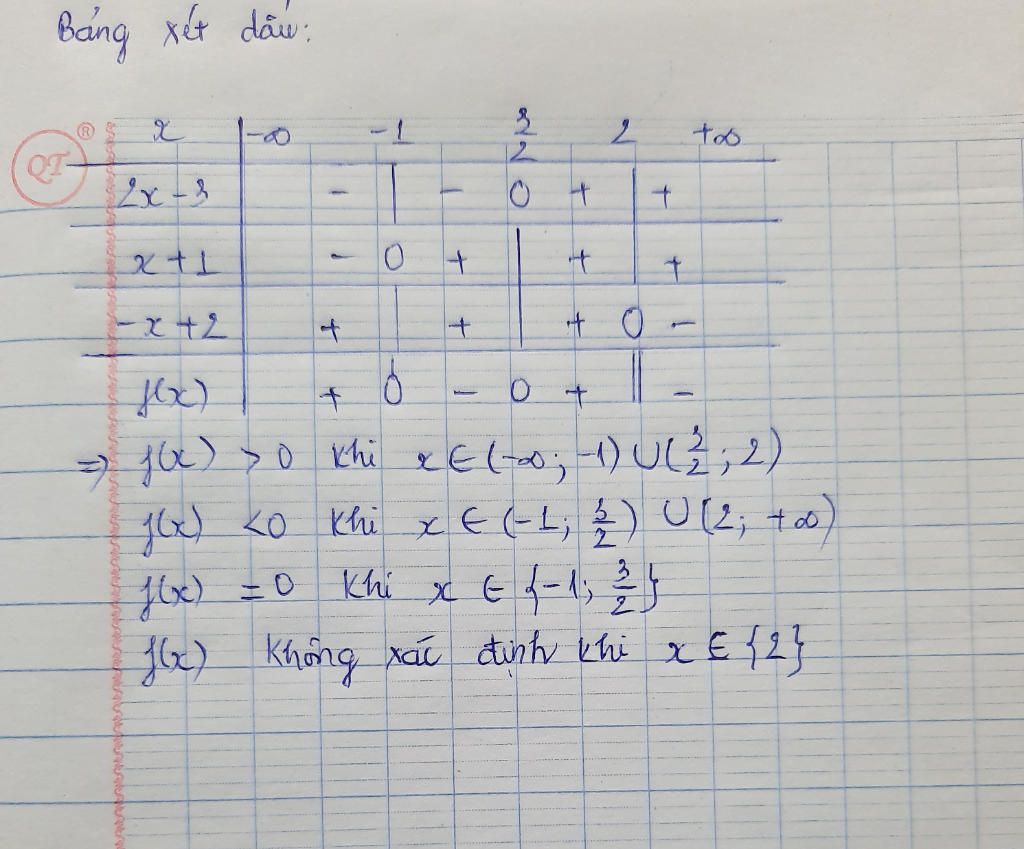 Bảng xét dấu:
QT ®
x -∞ -1 3/2 2 +∞
2x-3 - | - 0 + | +
x+1 - 0 + | + | +
-x+2 + | + | + 0 -
f(x) + 0 - 0 + || -
=> f(x) > 0 khi x ∈ (-∞; -1) ∪ (3/2; 2)
f(x) < 0 khi x ∈ (-1; 3/2) ∪ (2; +∞)
f(x) = 0 khi x ∈ {-1; 3/2}
f(x) không xác định khi x ∈ {2}